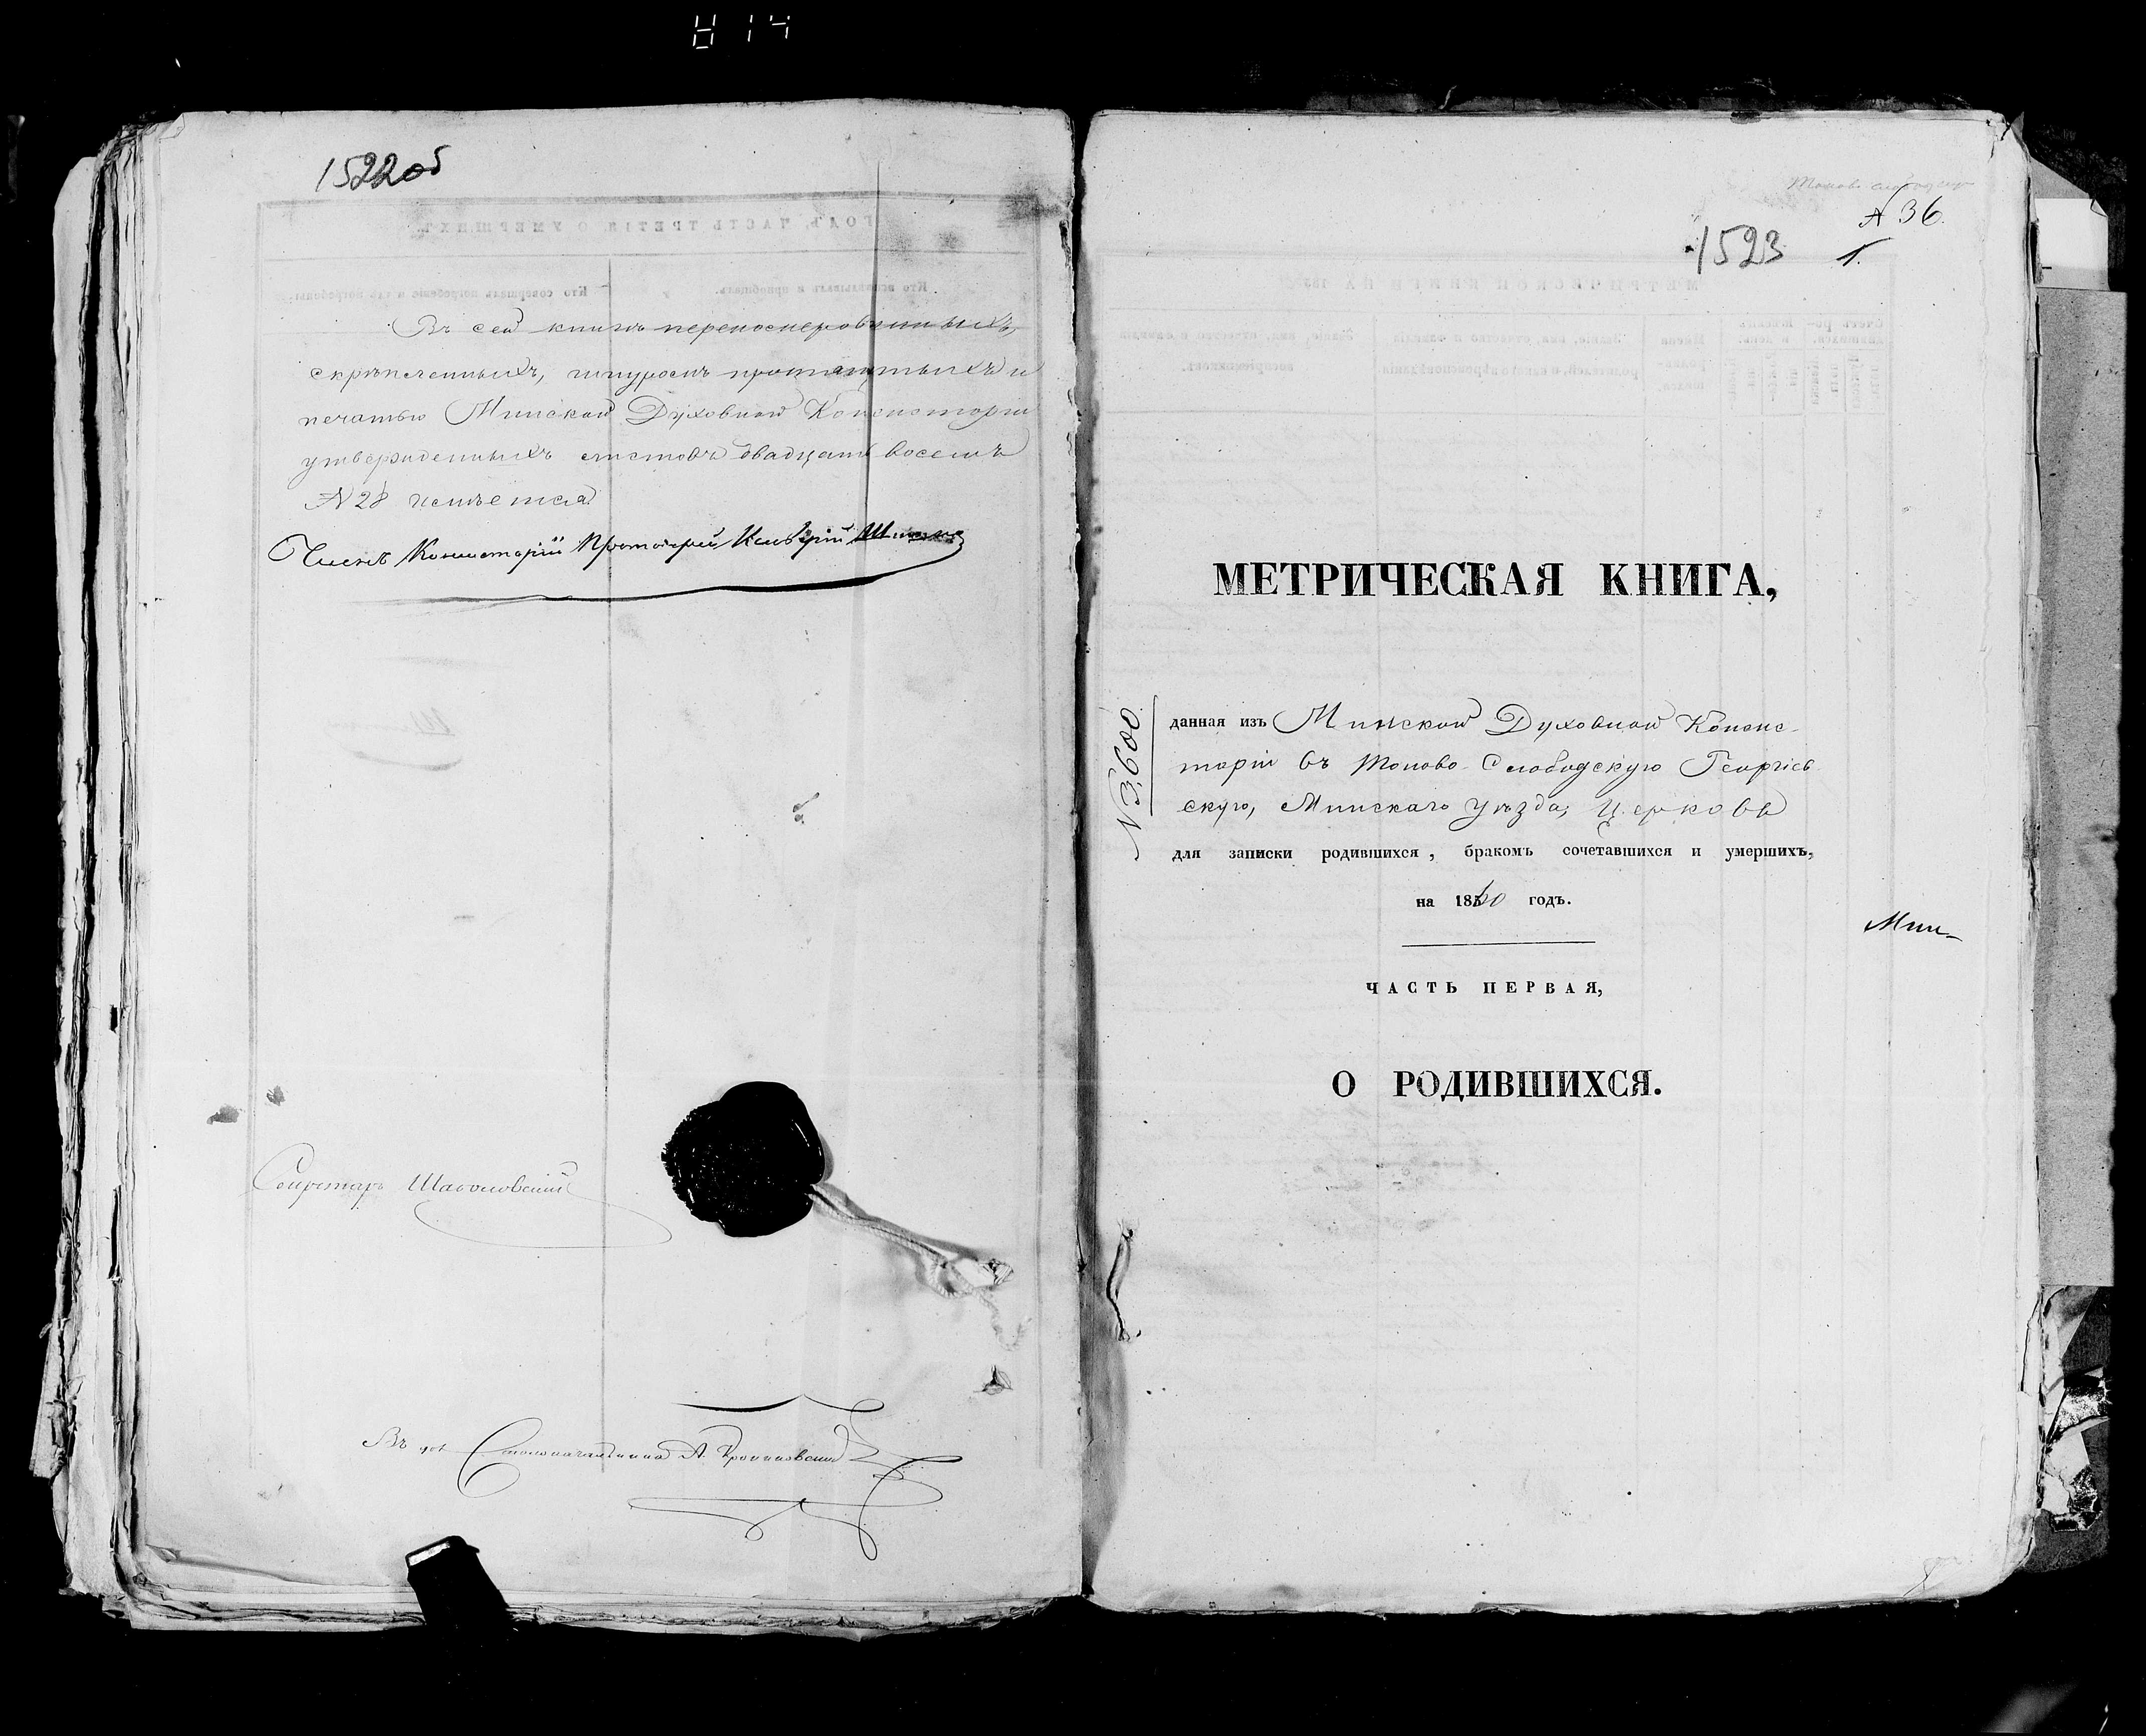 1522об
Въ сей книгѣ перенумерованныхъ,
скрѣпленныхъ, шнуромъ протянутыхъ и
печатью Минской Духовной Консисторіи
утвержденныхъ листовъ двадцать восемь
№ 28 имѣется.
Членъ Консисторіи Протоіерей
Секретарь
Въ Столоначальника А.
№ 36.
1523
1.
МЕТРИЧЕСКАЯ КНИГА,
№ 3,600
данная изъ Минской Духовной Консис-
торіи въ Тоново-Слободскую Георгіев
скую, Минскаго уѣзда, Церковь
для записки родившихся, бракомъ сочетавшихся и умершихъ,
на 1860 годъ.
Мин-
ЧАСТЬ ПЕРВАЯ,
О РОДИВШИХСЯ.